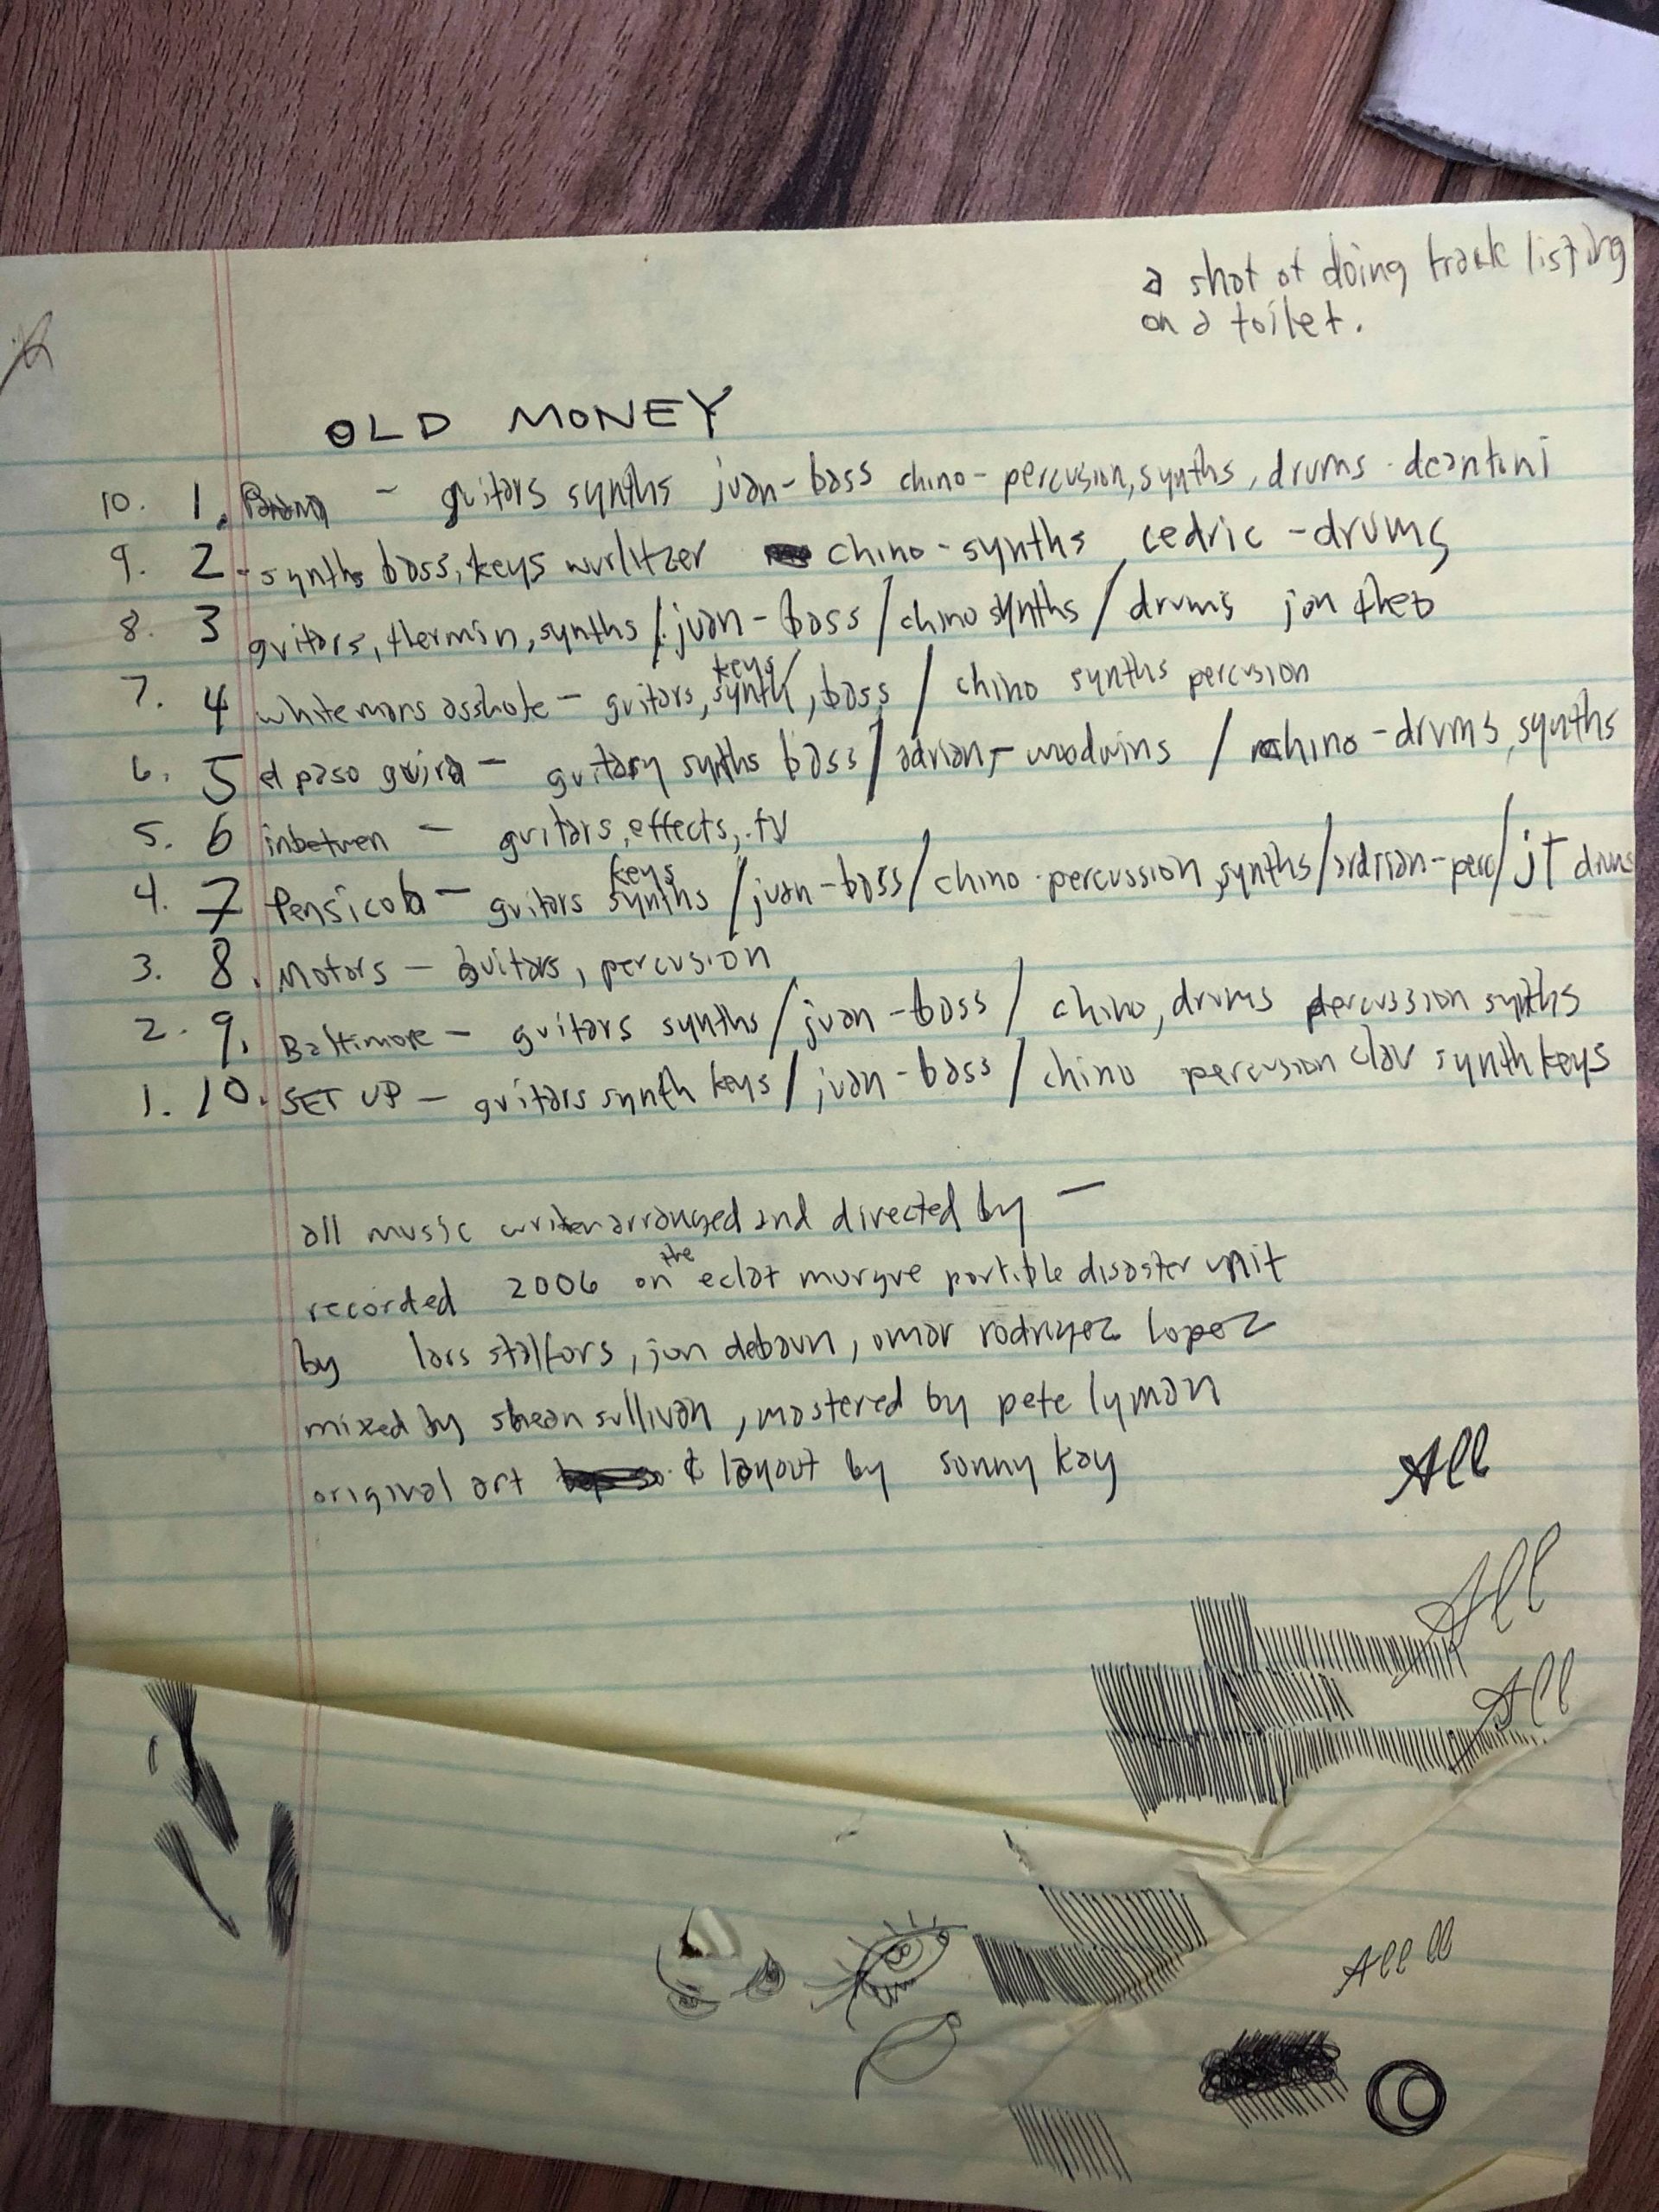 a shot of doing track listing
on a toilet.
OLD MONEY
10. 1. - guitars synths juan-bass chino-percusion, synths, drums - deantoni
9. 2 - synths bass, keys wurlitzer chino-synths cedric-drums
8. 3 guitars, thermin, synths / juan-bass / chino synths / drums jon theo
keys/
7. 4 white mans asshole - guitars, synth, bass / chino synths percusion
6. 5 el paso guira - guitars synths bass / adrian - woodwins / chino - drums, synths
5. 6 inbetwen - guitars, effects, tv
keys
4. 7 Pensicola - guitars synths / juan-bass / chino-percussion, synths / ardrian-perc / jt drums
3. 8. Motors - guitars, percusion
2. 9. Baltimore - guitars synths / juan-bass / chino, drums percussion synths
1. 10. SET UP - guitars synth keys / juan-bass / chino percusion clav synth keys
all music writen arranged and directed by -
the
recorded 2006 on eclat morgue portible disaster unit
by lars stalfors, jon debaun, omar rodriguez lopez
mixed by shean sullivan, mastered by pete lyman
original art & layout by sonny kay
All
All
All
All ll